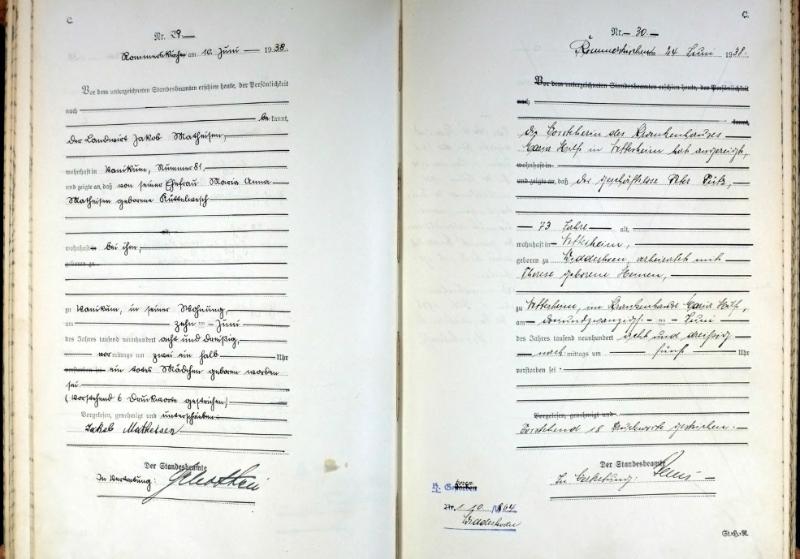 C.
Nr. 29
Rommerskirchen am 10. Juni 1938.
Vor dem unterzeichneten Standesbeamten erschien heute, der Persönlichkeit
nach
be kannt,
der Landwirt Jakob Matheisen,
wohnhaft in Vanikum, Nummer 81
und zeigte an, daß von seiner Ehefrau Maria Anna
Matheisen geborene
alt,
wohnhaft bei ihm,
geboren zu
zu Vanikum, in seiner Wohnung,
am zehn Juni
des Jahres tausend neunhundert acht und dreißig,
vor mittags um zwei ein halb Uhr
ein totes Mädchen geboren worden
sei
(Vorstehend 6 Druckworte gestrichen)
Vorgelesen, genehmigt und unterschrieben
Jakob Matheisen
Der Standesbeamte
In Vertretung:
C.
Nr. 30.
Rommerskirchen 24 Juni 1938.
Vor dem unterzeichneten Standesbeamten erschien heute, der Persönlichkeit
nach
kannt,
Die Vorsteherin des Krankenhauses
Maria Hilf in hat angezeigt,
wohnhaft in
und zeigte an, daß der geschäftslose Peter
73 Jahre alt,
wohnhaft in
geboren zu Widdeshoven, verheiratet mit
Therese geborene
zu im Krankenhause Maria Hilf,
am dreiundzwanzig Juni
des Jahres tausend neunhundert acht und dreissig
nach mittags um fünf Uhr
verstorben sei
Vorgelesen, genehmigt und
Vorstehend 18 Druckworte gestrichen.
Der Standesbeamte
In Vertretung:
Nr. 1864
Widdeshoven
St.-B.-R.